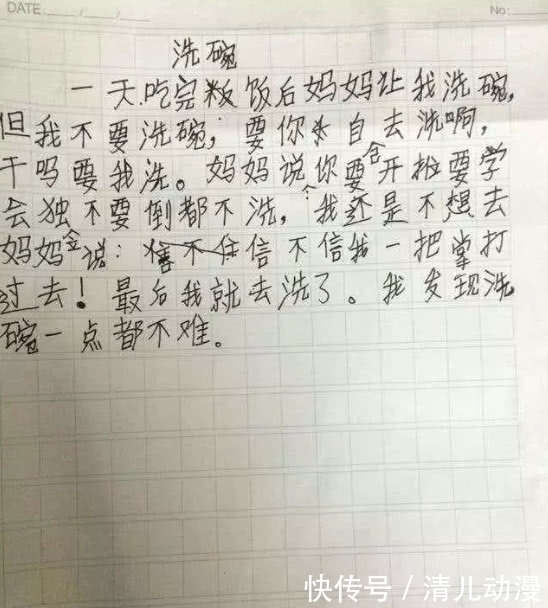 DATE / /
No:
洗碗
一天.吃完粄饭后妈妈让我洗碗,
但我不要洗碗,要你自去洗啊,
干吗要我洗。妈妈说你要开拴要学
会独不要倒都不洗,我还是不想去
妈妈说:信不信我一把掌打
过去!最后我就去洗了。我发现洗
碗一点都不难。
快传号/清儿动漫